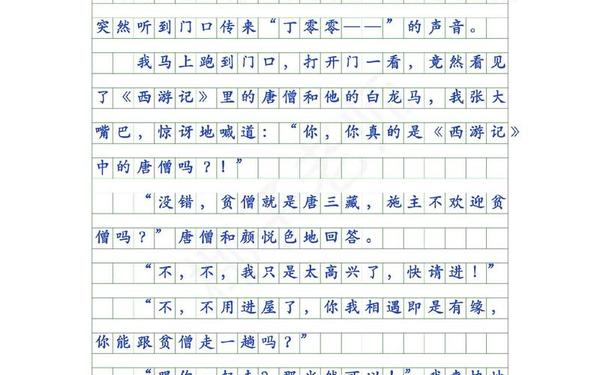 突然听到门口传来“丁零零——”的声音。
我马上跑到门口，打开门一看，竟然看见
了《西游记》里的唐僧和他的白龙马，我张大
嘴巴，惊讶地喊道：“你，你真的是《西游记》
中的唐僧吗？！”
“没错，贫僧就是唐三藏，施主不欢迎贫
僧吗？”唐僧和颜悦色地回答。
“不，不，我只是太高兴了，快请进！”
“不，不用进屋了，你我相遇即是有缘，
你能跟贫僧走一趟吗？”